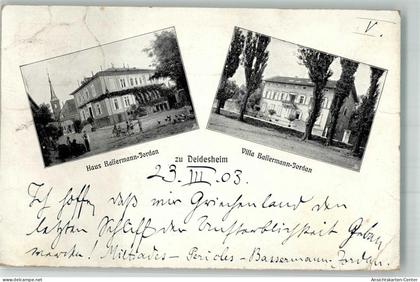 V.
Haus Bassermann-Jordan
zu Deidesheim
Villa Bassermann-Jordan
23. III. 03.
Ich hoffe, daß wir Griechenland den
letzten Schiff der Unsterblichkeit
machen! Miltiades - Pericles - Bassermann-Jordan.
www.ansichtskartenversand.com